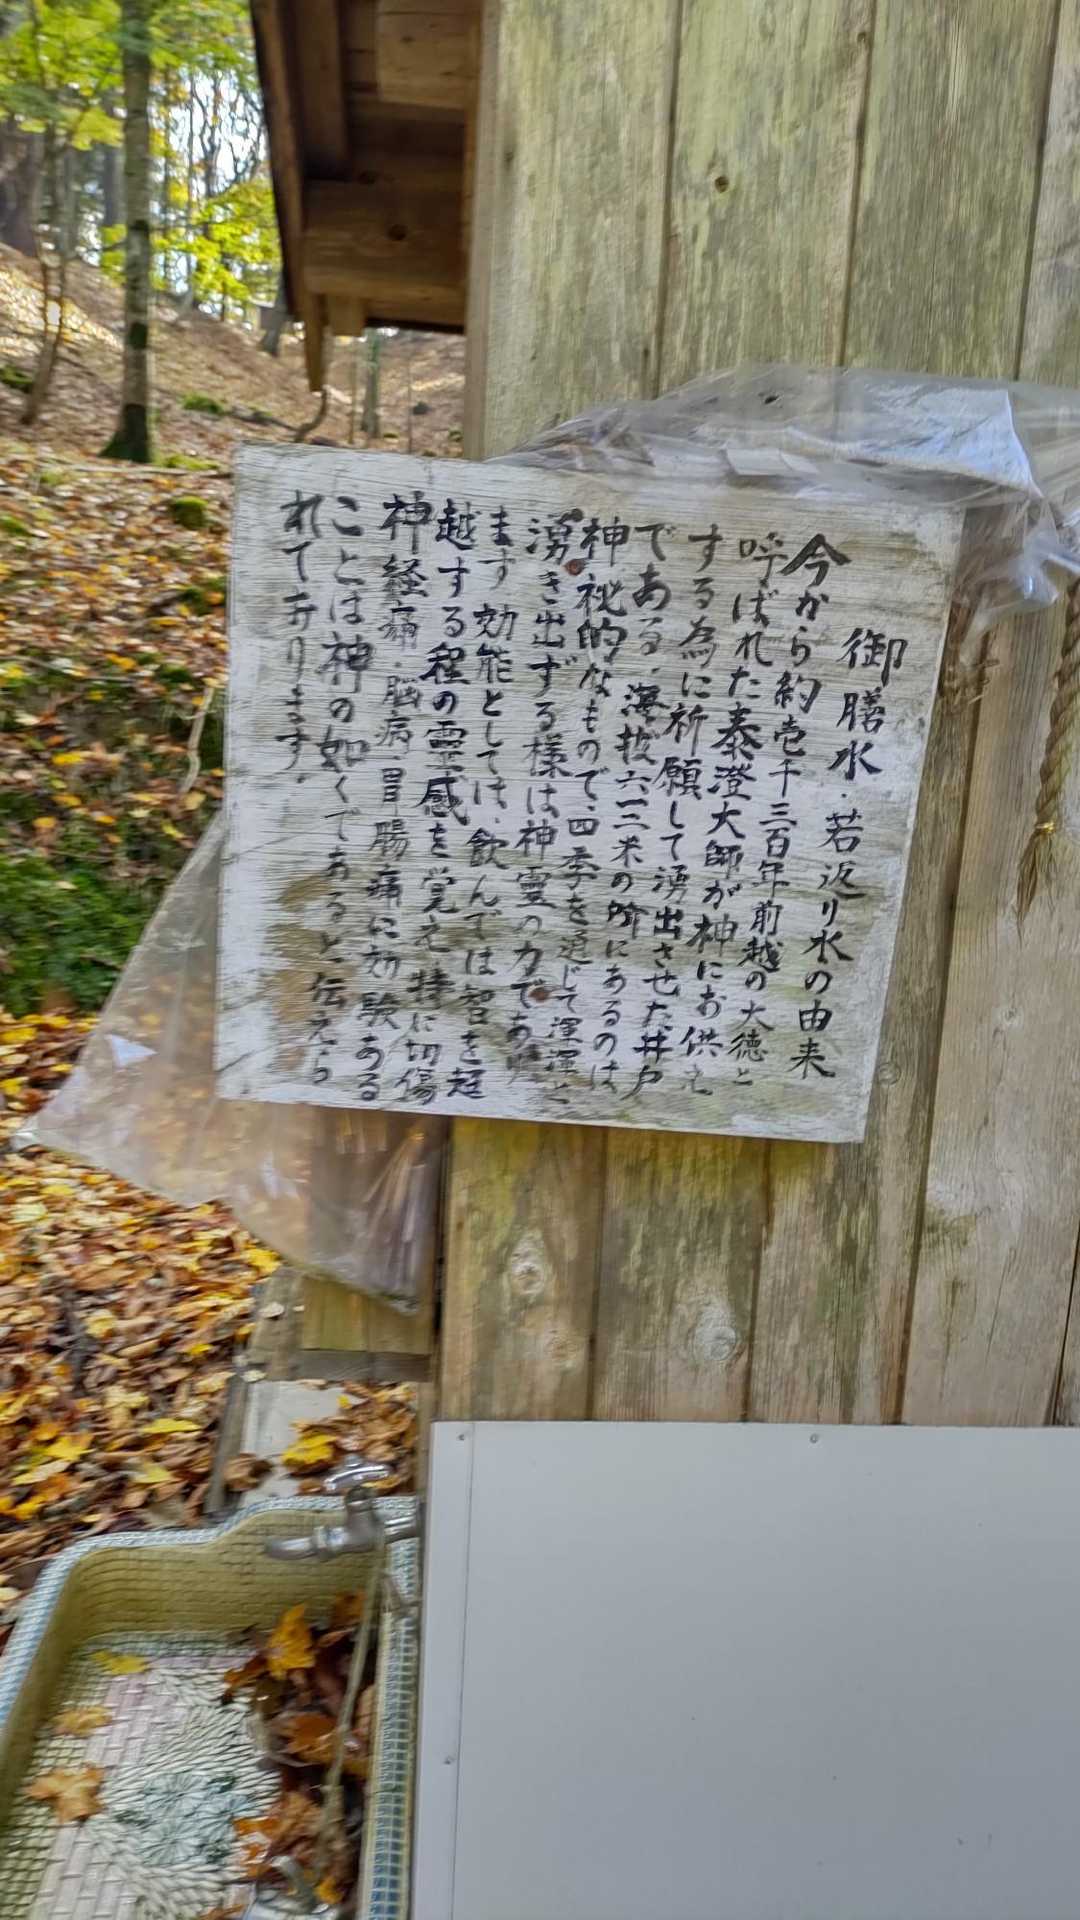 御膳水・若返り水の由来
今から約壱千三百年前越の大徳と
呼ばれた泰澄大師が神にお供え
する為に祈願して湧出させた井戸
である・海抜六一二米の所にあるのは
神秘的なもので、四季を通じて渾渾と
湧き出ずる様は神霊の力であり
ます 効能としては、飲んでは智を超
越する程の霊感を覚え 特に切傷
神経痛・脳病・胃腸痛に効験ある
ことは神の如くであると伝えら
れております・